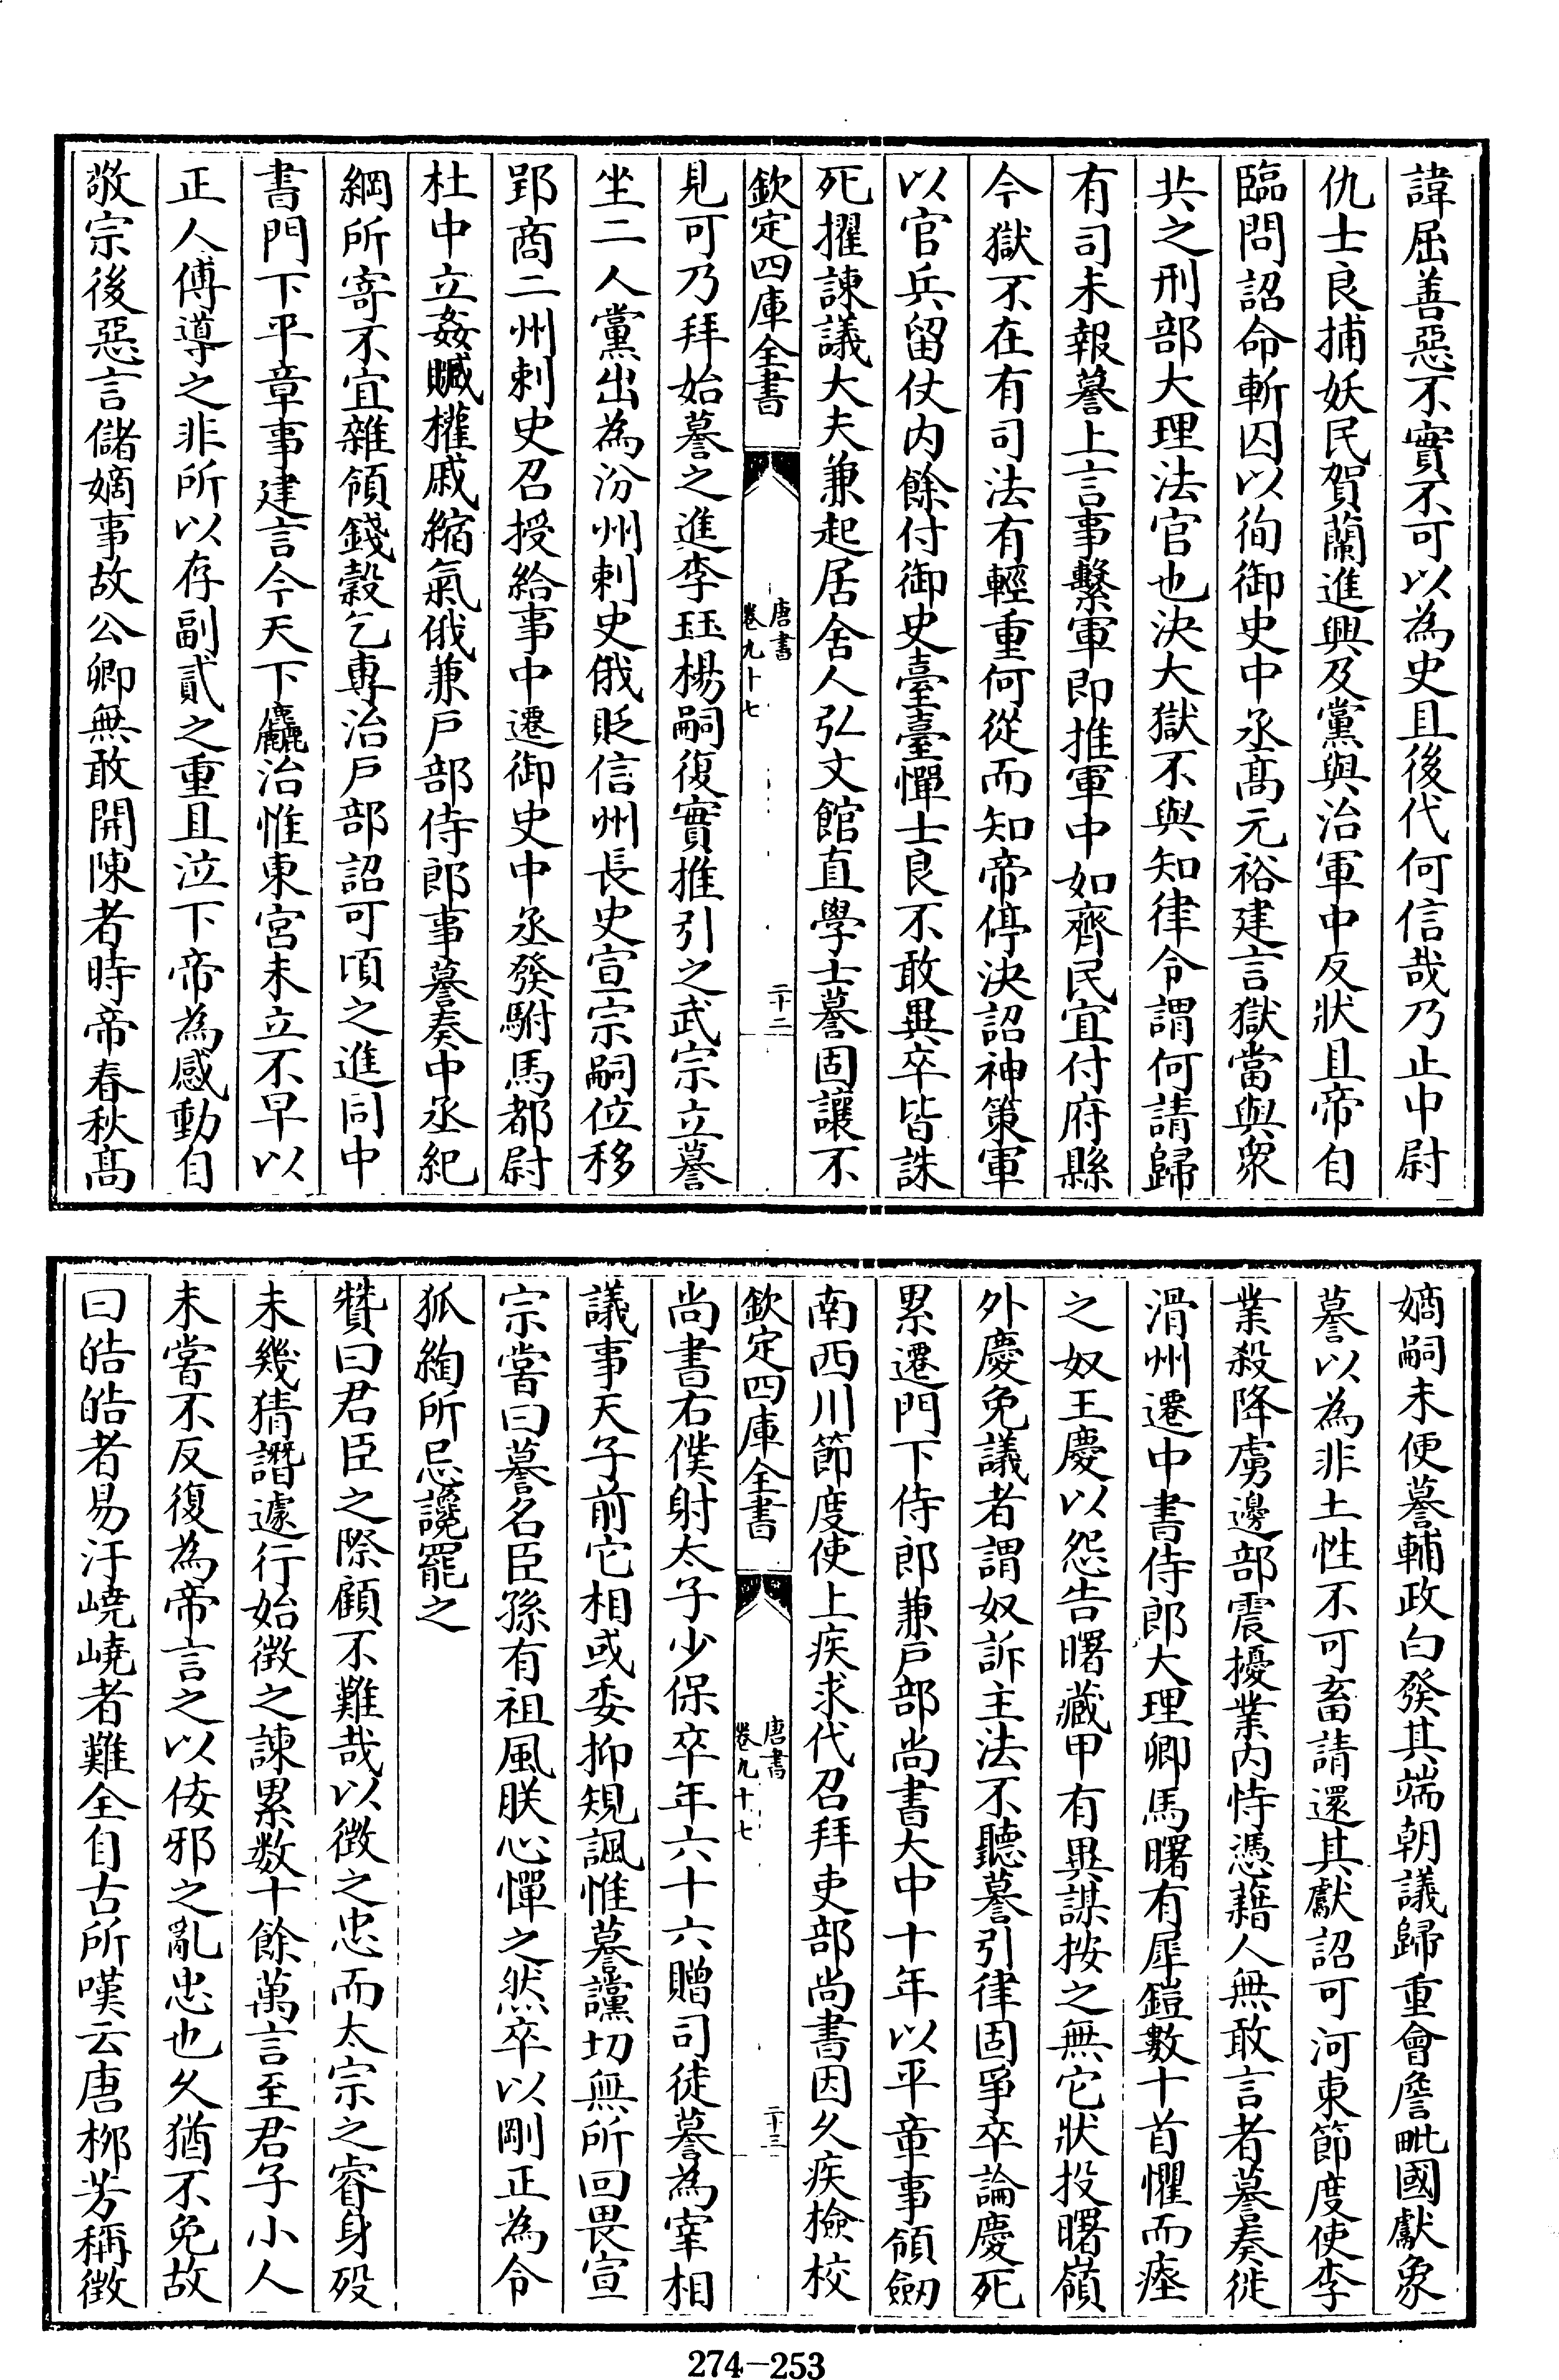 諱屈善惡不實不可以為史且後代何信哉乃止中尉
仇士良捕妖民賀蘭進興及黨與治軍中反狀且帝自
臨問詔命斬囚以徇御史中丞髙元裕建言獄當與衆
共之刑部大理法官也決大獄不與知律令謂何請歸
有司未報謩上言事繫軍即推軍中如齊民宜付府縣
今獄不在有司法有輕重何從而知帝停決詔神策軍
以官兵留仗内餘付御史臺臺憚士良不敢異卒皆誅
死擢諫議大夫兼起居舍人弘文館直學士謩固讓不
欽定四庫全書
唐書
卷九十七
二十二
見可乃拜始謩之進李珏楊嗣復實推引之武宗立謩
坐二人黨出為汾州刺史俄貶信州長史宣宗嗣位移
郢商二州刺史召授給事中遷御史中丞發駙馬都尉
杜中立姦贓權戚縮氣俄兼戶部侍郎事謩奏中丞紀
綱所寄不宜雜領錢穀乞專治戶部詔可頃之進同中
書門下平章事建言今天下麤治惟東宮未立不早以
正人傅導之非所以存副貳之重且泣下帝為感動自
敬宗後惡言儲嫡事故公卿無敢開陳者時帝春秋髙
嫡嗣未便謩輔政白發其端朝議歸重會詹毗國獻象
謩以為非土性不可畜請還其獻詔可河東節度使李
業殺降虜邊部震擾業内恃憑藉人無敢言者謩奏徙
滑州遷中書侍郎大理卿馬曙有犀鎧數十首懼而瘞
之奴王慶以怨告曙藏甲有異謀按之無它狀投曙嶺
外慶免議者謂奴訴主法不聽謩引律固爭卒論慶死
累遷門下侍郎兼戶部尚書大中十年以平章事領劒
南西川節度使上疾求代召拜吏部尚書因久疾檢校
欽定四庫全書
唐書
卷九十七
二十三
尚書右僕射太子少保卒年六十六贈司徒謩為宰相
議事天子前它相或委抑規諷惟謩讜切無所回畏宣
宗嘗曰謩名臣孫有祖風朕心憚之然卒以剛正為令
狐綯所忌讒罷之
贊曰君臣之際顧不難哉以徵之忠而太宗之睿身殁
未幾猜譖遽行始徵之諫累数十餘萬言至君子小人
未嘗不反復為帝言之以佞邪之亂忠也久猶不免故
曰皓皓者易汙嶢嶢者難全自古所嘆云唐栁芳稱徵
274-253